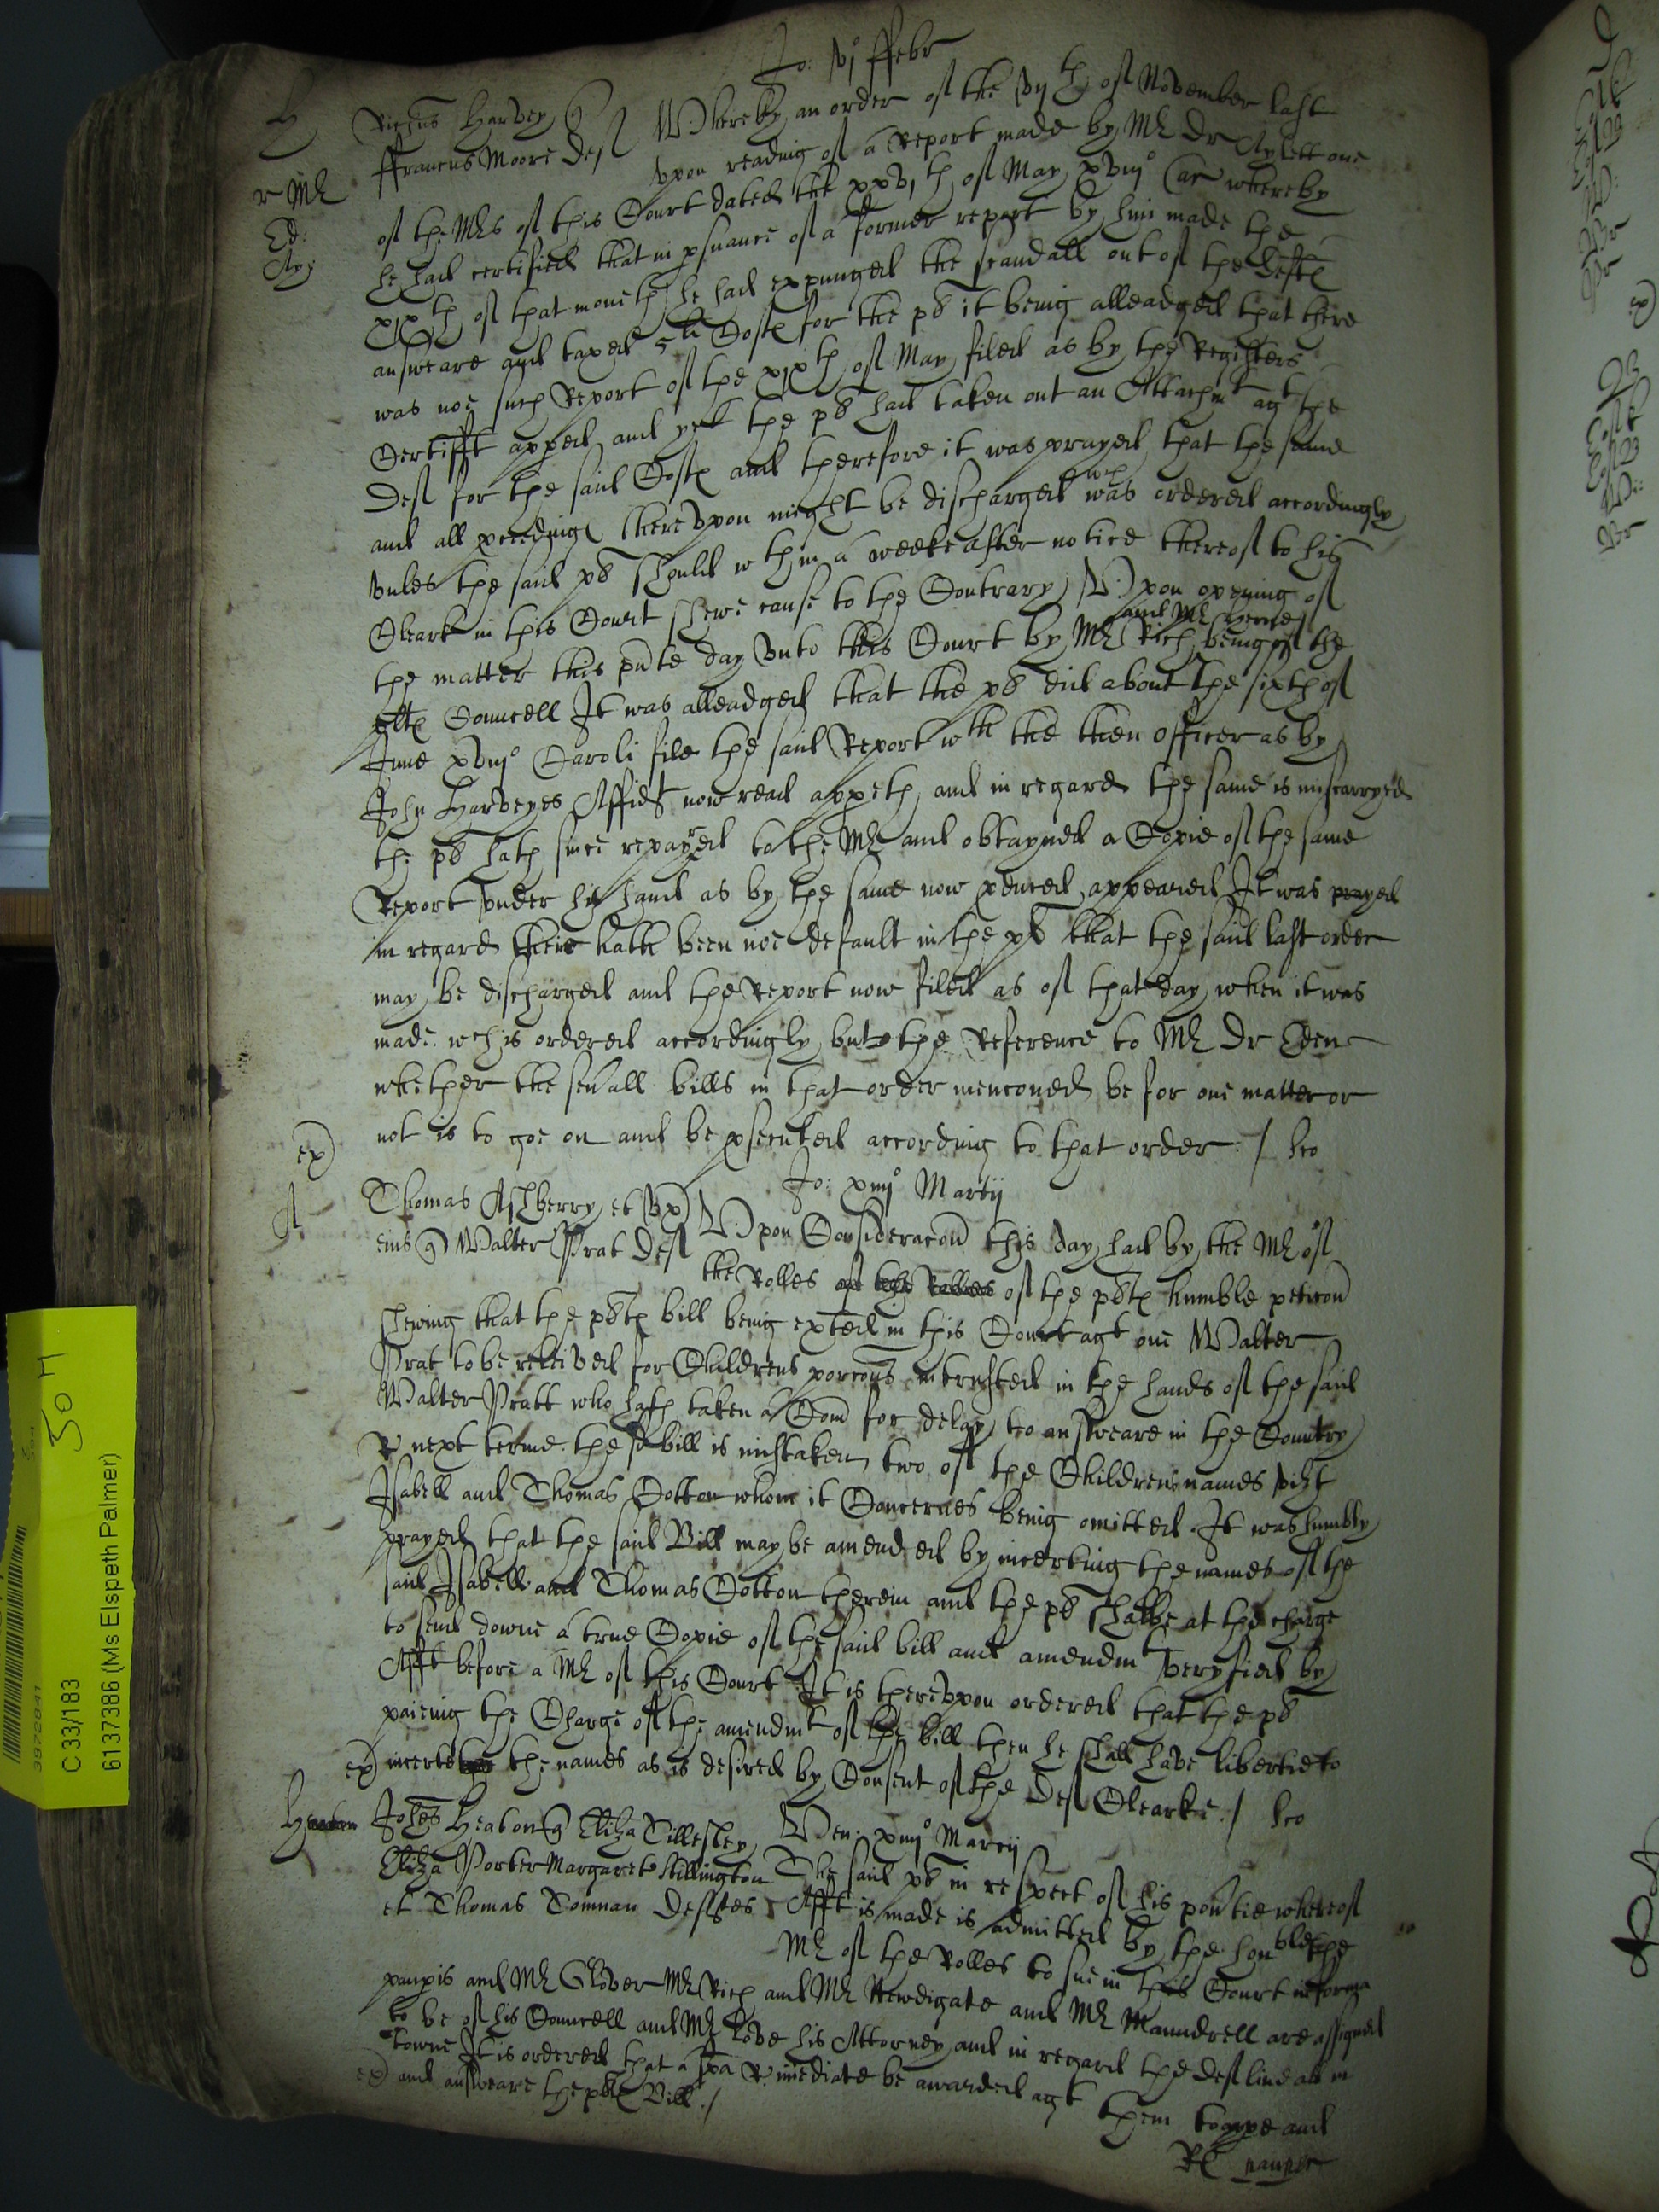 Jo: vj° ffebr
H Richus Harvey q Whereby an order of the vijth of November last
ffrancus Moore def vpon reading of a Report made by Mr Dr Aylett one
r Mr of the Mrs of this Court dated the xxvjth of May xviij° Car whereby
Ed: he had certified that in psuance of a former report by him made the
Ay: xixth of that moneth he had expunged the scandall out of the defts
answeare and taxed 5li Costs for the pl it being alleadged that there
was noe such Report of the xixth of May filed as by the Registers
Certifft apped and yet the pl had taken out an Attachmt agt the
def for the said Costs and therefore it was prayed that the same
and all pceedings therevpon might be discharged wch was ordered accordingly
vnles the said pl should wthin a weeke after notice thereof to his
Clearke in this Court shewe cause to the Contrary Vpon opening of
the matter this pnte day vnto this Court by Mr Rich and Mr being of the
plts Councell It was alleadged that the pl did about the sixth of
June xviij° Caroli file the said Report wth the then officer as by
John Harveyes Affidt now read appeth and in regard the same is miscarryed
the pl hath since repayred to the Mr and obtayned a Copie of the same
Report vnder his hand as by the same now pduced appeared It was prayed
in regard there hath been noe default in the pl that the said last order
may be discharged and the Report now filed as of that day when it was
made wch is ordered accordingly but the Reference to Mr Dr Eden
whether the seuall bills in that order menconed be for one matter or
ex) not is to goe on and be psecuted according to that order / Leo
Jo: xiiij° Martij
A Thomas Ashberry et vx
eius q Walter Prat def Vpon Consideracon this day had by the Mr of
the Rolles of the Rolles of the plts humble peticon
shewing that the plts bill being exhted in this Court agt one Walter
Prat to be releived for Childrens porcons intrusted in the hands of the said
Walter Pratt who hath taken a Com for delay to answeare in the Country
R next terme the sd bill is mistaken two of the Childrens names vizt
Isabell and Thomas Cotton whom it Concernes being omitted. It was humbly
prayed that the said Bill may be amended by incerting the names of the
said Isabell and Thomas Cotton therein and the pl shalbe at the charge
to send downe a true Copie of the said bill and amendmt veryfied by
Afft before a Mr of this Court It is therevpon ordered that the pl
paieing the Charge of the amendmt of the bill then he shall have libertie to
ex) incerte the names as is desired by Consent of the def Clearke / Leo
Ven: xiiij° Marcij
H Johes Heaton q Eliza Tillesley
Eliza Porter Margareta Killington The said pl in respect of his pouertie whereof
et Thomas Tomnan deftes Afft is made is admitted by the honble the
Mr of the Rolles to sue in this Court in forma
paupis and Mr Glover Mr Rich and Mr Newdigate and Mr Maundrell are assigned
to be of his Councell and Mr Love his Attorney and in regard the def live all in
towne It is ordered that a spa R imediate be awarded agt them to appe and
ex) and answeare the plts Bill /
Rl pauper
50 H
3972841
C 33/183
6137386 (Ms Elspeth Palmer)